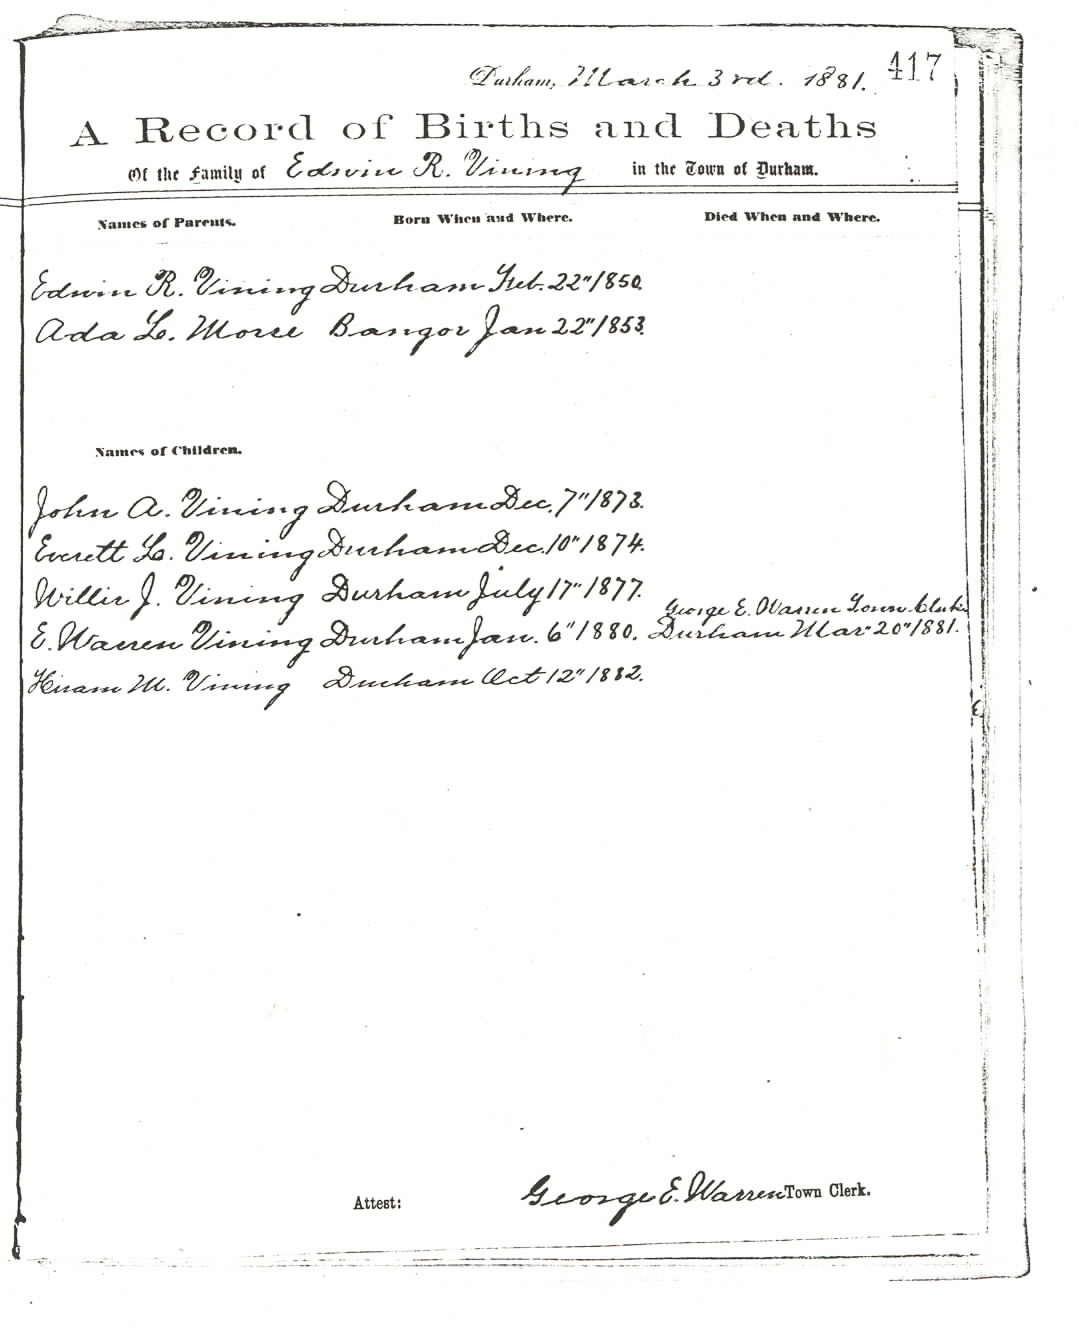 Durham, March 3rd. 1881. 417
A Record of Births and Deaths
Of the Family of Edwin R. Vining in the Town of Durham.
Names of Parents. Born When and Where. Died When and Where.
Edwin R. Vining Durham Feb. 22" 1850.
Ada L. Morse Bangor Jan 22" 1853.
Names of Children.
John A. Vining Durham Dec. 7" 1873.
Everett L. Vining Durham Dec. 10" 1874.
Willis J. Vining Durham July 17" 1877.
George E. Warren Town Clerk
E. Warren Vining Durham Jan. 6" 1880. Durham Mar 20" 1881.
Hiram M. Vining Durham Oct 12" 1882.
Attest: George E. Warren Town Clerk.